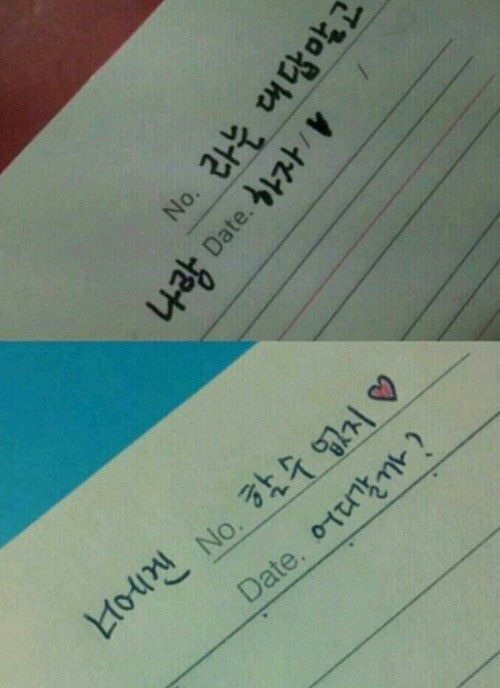 No. 라는 대답말고
나랑 Date. 하자!
너에겐 No. 할수 없지 ♥
Date. 어디갈까?